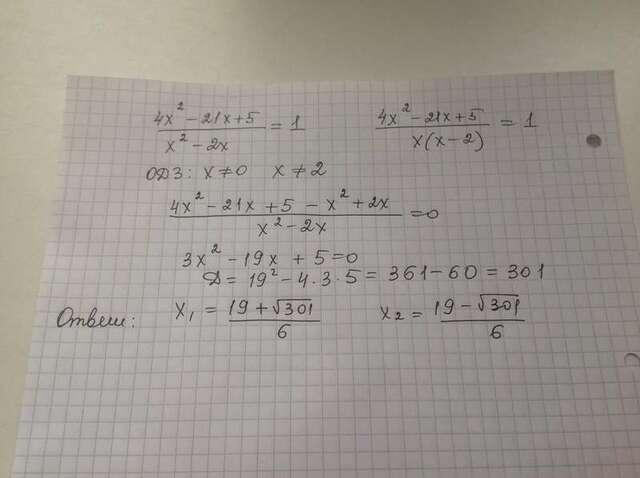 (4x² − 21x + 5)/(x² − 2x) = 1    (4x² − 21x + 5)/(x(x − 2)) = 1
ОДЗ: x ≠ 0  x ≠ 2
(4x² − 21x + 5 − x² + 2x)/(x² − 2x) = 0
3x² − 19x + 5 = 0
Д = 19² − 4·3·5 = 361 − 60 = 301
Ответ: x₁ = (19 + √301)/6    x₂ = (19 − √301)/6